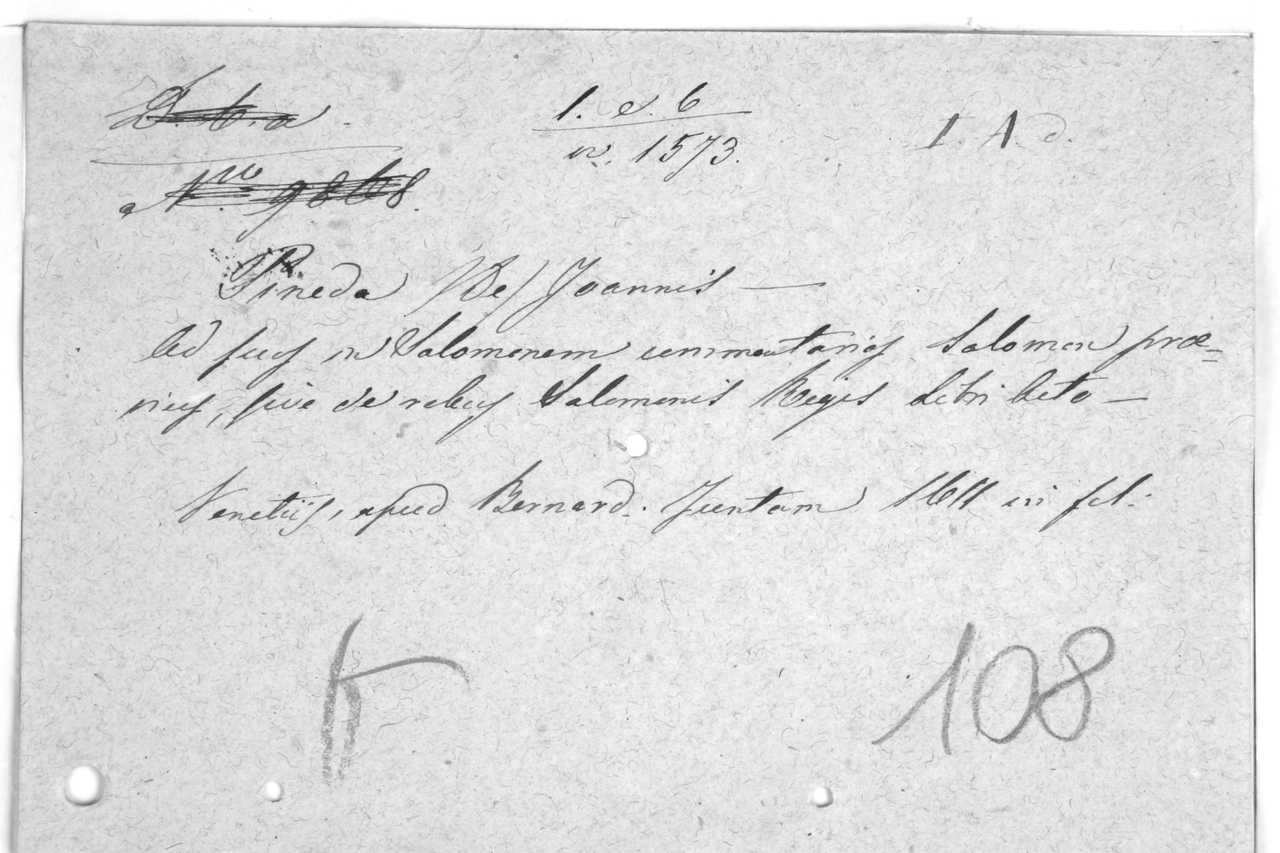 D. b. a
1. e. b
nr. 1573.
I. A. d.
Nro. 9868.
Pineda /de/ Joannis —
Ad suos in Salomonem commentarios Salomon præ=
vius, sive de rebus Salomonis Regis Libri Octo —
Venetiis, apud Bernard. Juntam 1611 in fol:
108